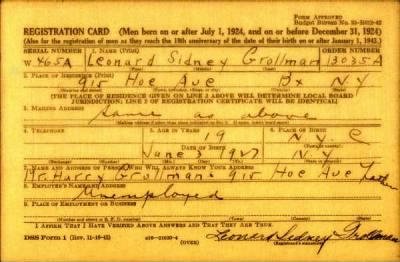 Form Approved
Budget Bureau No. 33-R012-42
REGISTRATION CARD (Men born on or after July 1, 1924, and on or before December 31, 1924)
(Also for the registration of men as they reach the 18th anniversary of the date of their birth on or after January 1, 1925.)
SERIAL NUMBER 1. NAME (Print) ORDER NUMBER
W 465A Leonard Sidney Grollman 13035A
2. PLACE OF RESIDENCE (Print)
915 Hoe Ave Bx N.Y
(THE PLACE OF RESIDENCE GIVEN ON LINE 2 ABOVE WILL DETERMINE LOCAL BOARD
JURISDICTION; LINE 2 OF REGISTRATION CERTIFICATE WILL BE IDENTICAL)
3. MAILING ADDRESS
Same as above
4. TELEPHONE 5. AGE IN YEARS 6. PLACE OF BIRTH
19 N.Y.C
DATE OF BIRTH
June 3 N.Y.
7. NAME AND ADDRESS OF PERSON WHO WILL ALWAYS KNOW YOUR ADDRESS
Mr. Harry Grollman 915 Hoe Ave Father
8. EMPLOYER'S NAME AND ADDRESS
Unemployed
9. PLACE OF EMPLOYMENT OR BUSINESS
I AFFIRM THAT I HAVE VERIFIED ABOVE ANSWERS AND THAT THEY ARE TRUE.
DSS Form 1 (Rev. 11-16-42) (OVER) Leonard Sidney Grollman